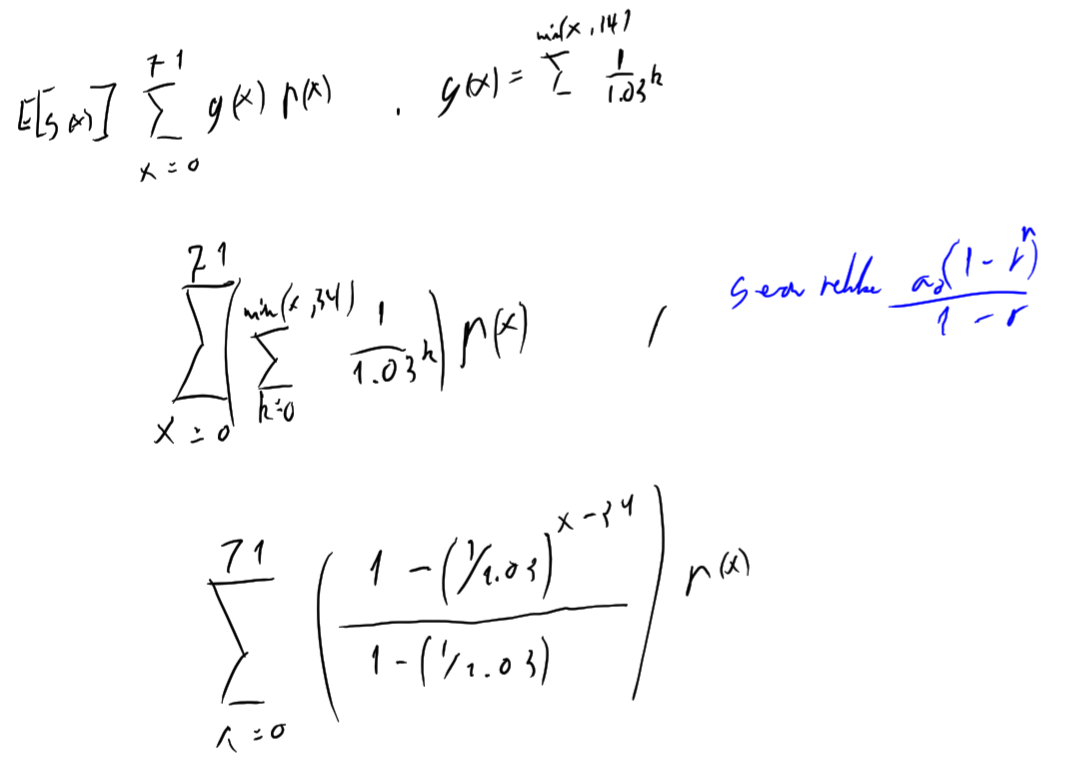 E[g(x)] \sum_{x=0}^{71} g(x) p(x) , g(x) = \sum^{min(x,14)} \frac{1}{1.03^k}
\sum_{x=0}^{71} \left( \sum_{k=0}^{min(x,34)} \frac{1}{1.03^k} \right) p(x) / \frac{a_0(1-r^n)}{1-r}
\sum_{x=0}^{71} \left( \frac{1-(1/1.03)^{x-34}}{1-(1/1.03)} \right) p(x)